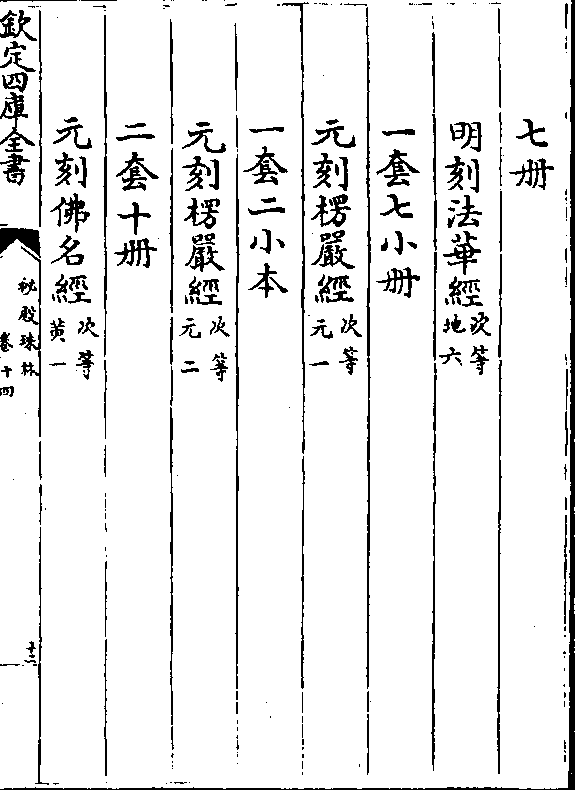 七册
明刻法華經次等地六
一套七小册
元刻楞嚴經次等元一
一套二小本
元刻楞嚴經次等元二
二套十册
元刻佛名經次等黄一
欽定四庫全書
秘殿珠林
卷十四
十二